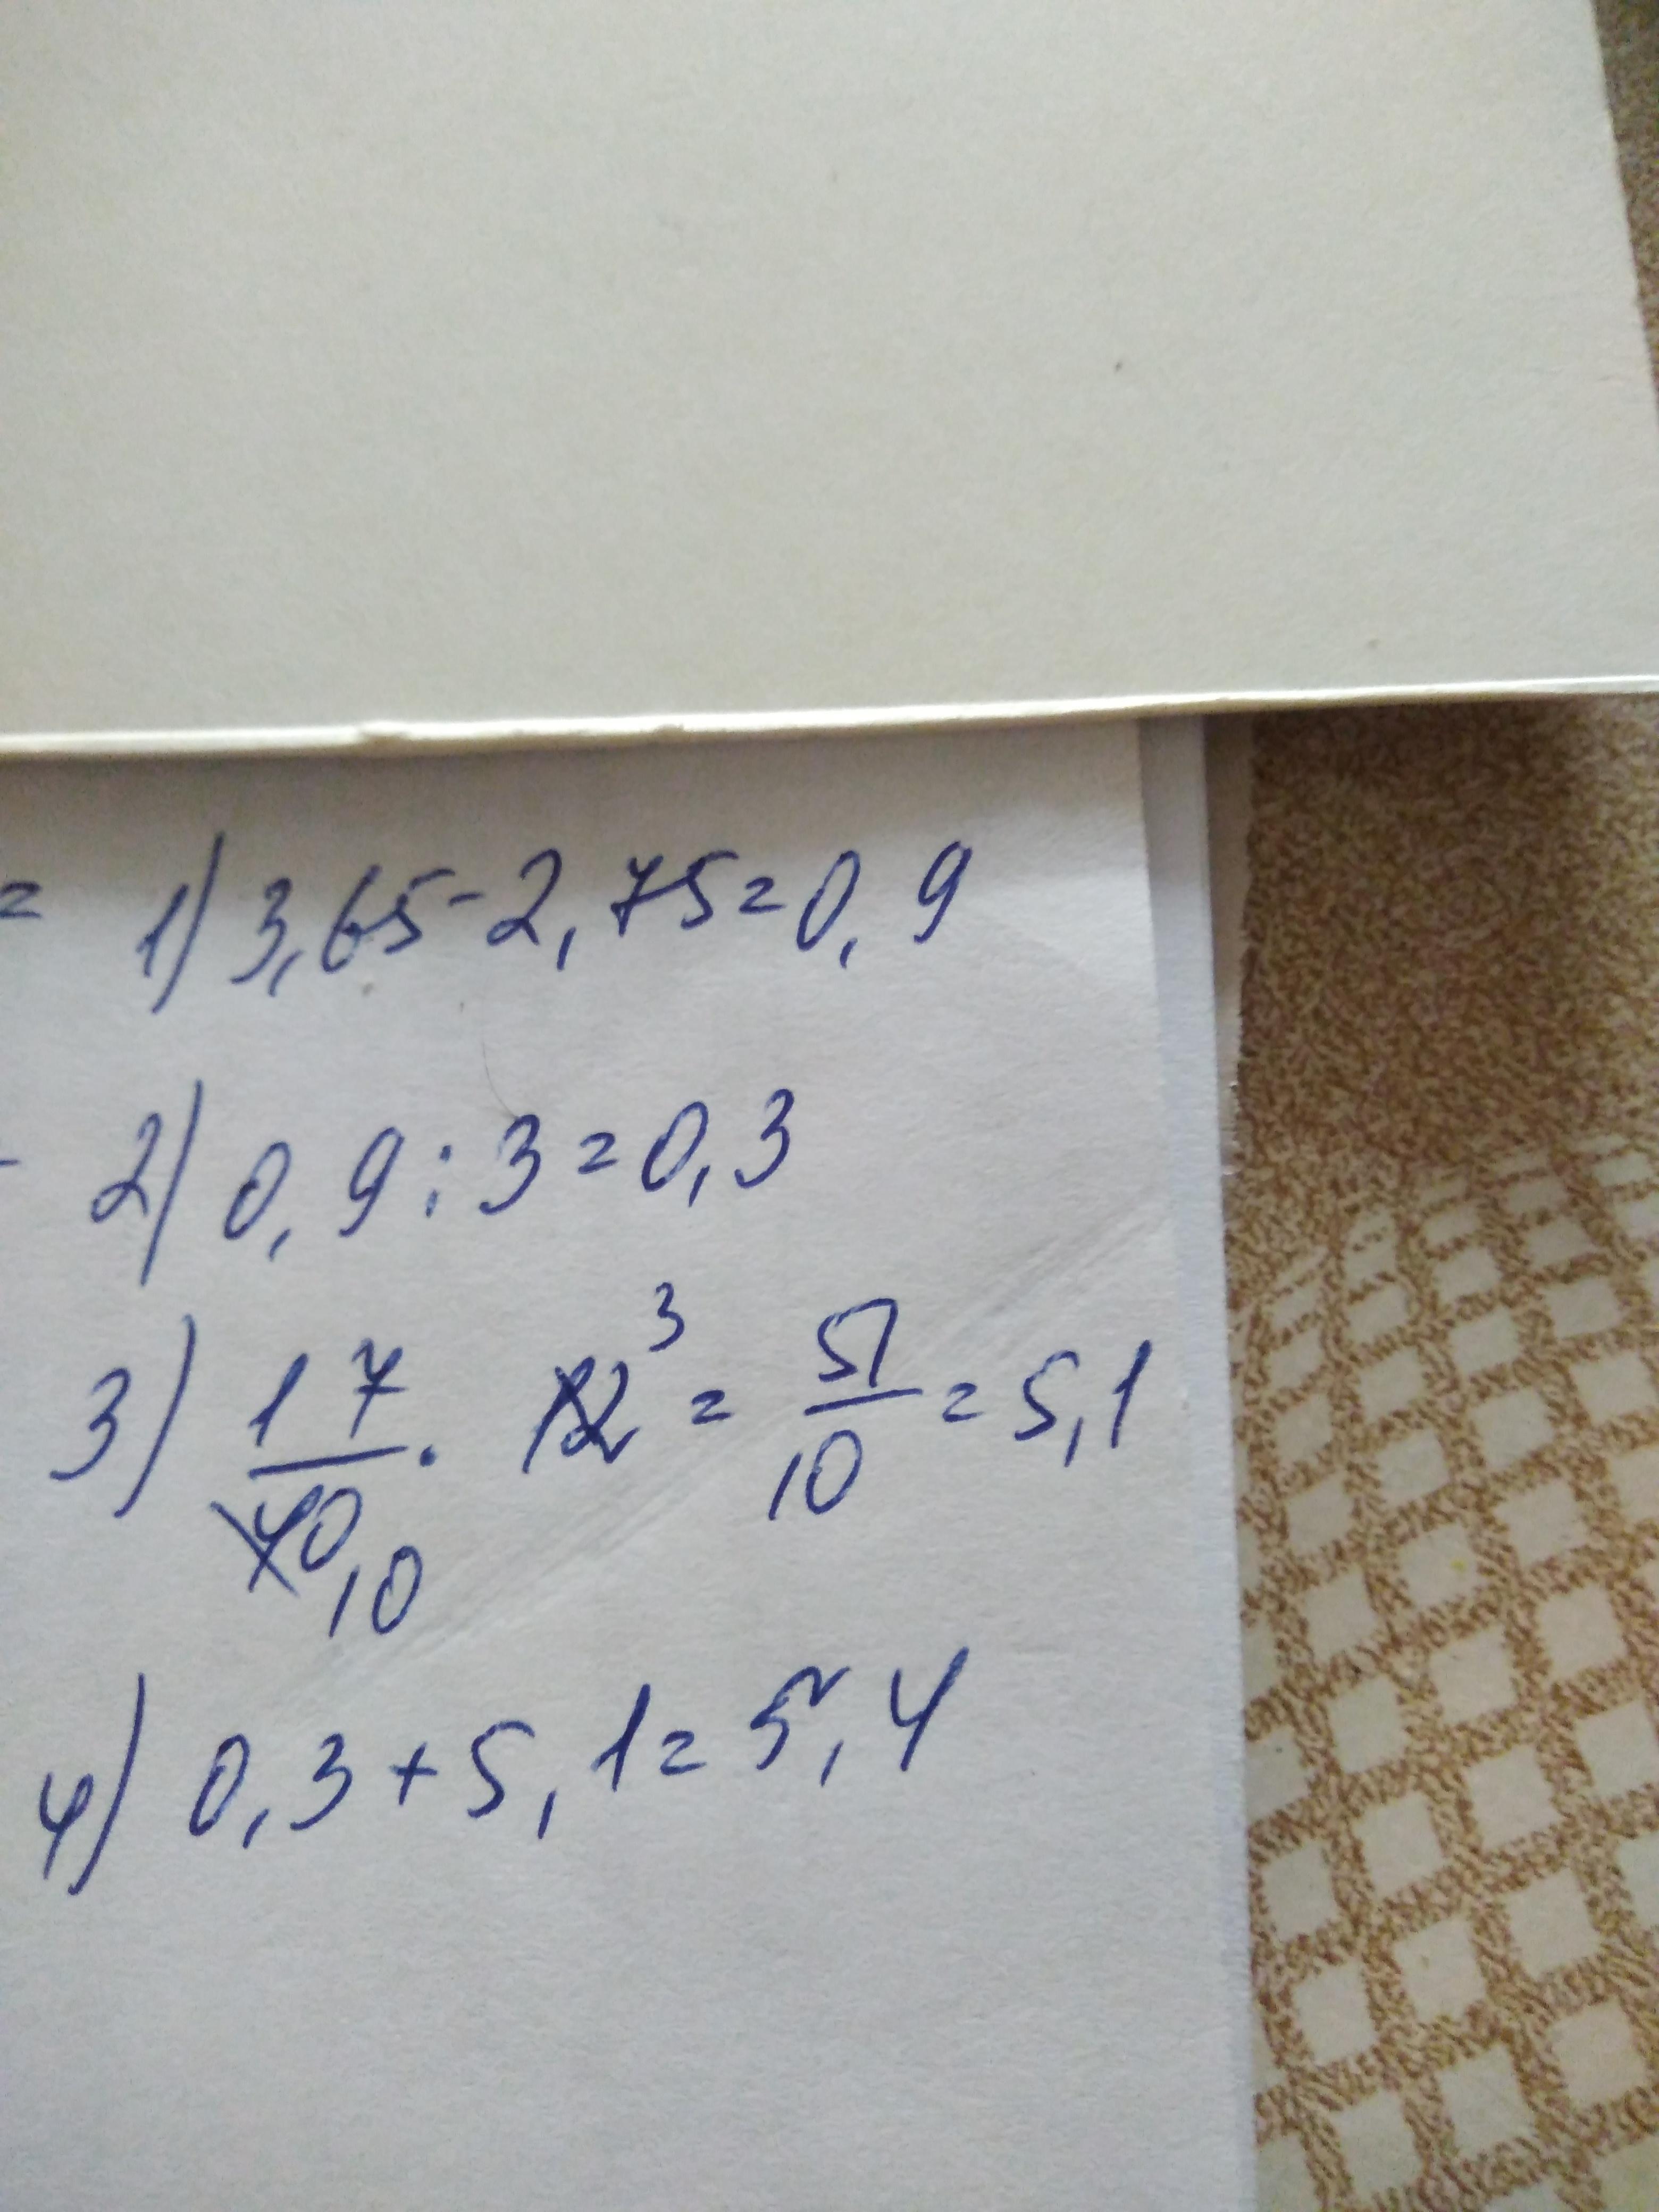 = 1) 3,65-2,75=0,9
- 2) 0,9:3=0,3
3) 17/40 10 · 12 3 = 51/10 = 5,1
4) 0,3+5,1=5,4